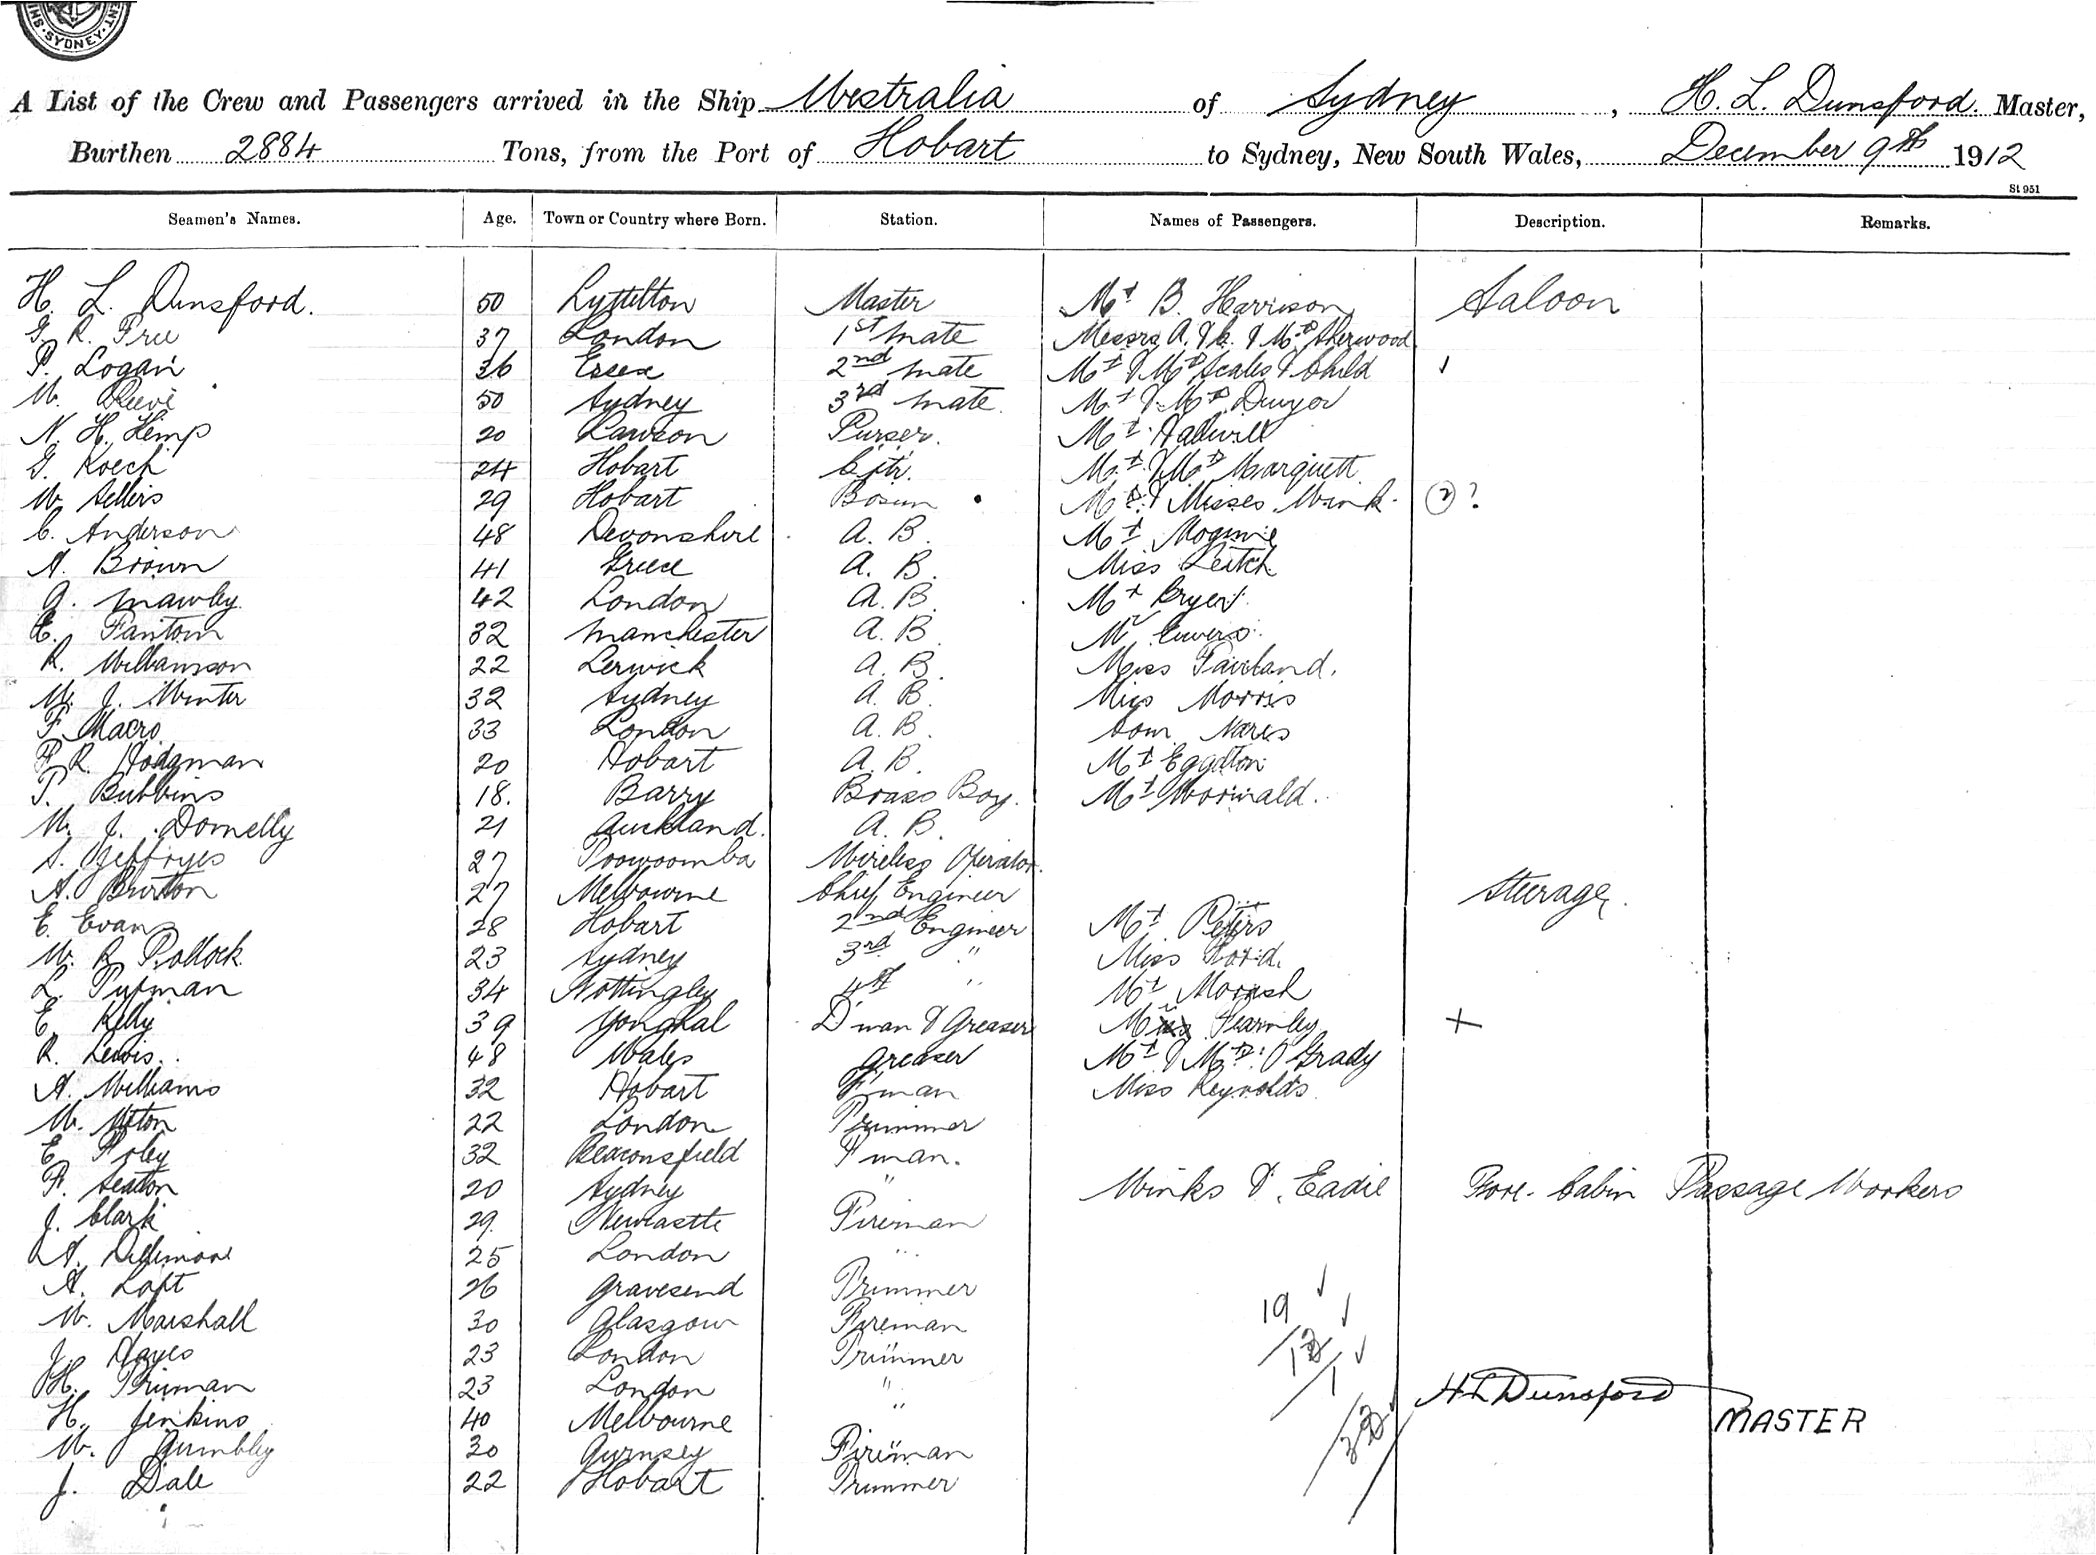 SYDNEY
A List of the Crew and Passengers arrived in the Ship Westralia of Sydney, H. L. Dunsford. Master,
Burthen 2884 Tons, from the Port of Hobart to Sydney, New South Wales, December 9th 1912
St 951
Seamen's Names. Age. Town or Country where Born. Station. Names of Passengers. Description. Remarks.
H. L. Dunsford. 50 Lyttelton Master Mr B. Harrison Saloon
G. R. Free 37 London 1st Mate Messrs A. & & Mrs Sherwood
P. Logan 36 Essex 2nd Mate Mr & Mrs Scales & Child
W. 50 Sydney 3rd Mate. Mr & Mrs Dwyer
N. H. Kemp 20 Lawson Purser. Mr
G. Koech 24 Hobart Mr & Mrs Marquett
W. Sellers 29 Hobart Bosun Mrs & Misses Wink. (2)?
C. Anderson 48 Devonshire A. B. Mr
A. Brown 41 Greece A. B. Miss Leitch
A. Mawley 42 London A. B. Mr Cryer
E. Fantom 32 Manchester A. B. Mr
R. Williamson 22 Lerwick A. B. Miss
W. J. Winter 32 Sydney A. B. Miss Morris
F. Macro 33 London A. B. Com Nares
F. R. Hodgman 20 Hobart A. B. Mr
T. Bubbins 18. Barry Brass Boy. Mr Wormald.
W. J. Donnelly 21 Auckland. A. B.
S. Jeffryes 27 Toowoomba Wireless Operator.
A. Burton 27 Melbourne Chief Engineer Steerage.
E. Evans 28 Hobart 2nd Engineer Mr Peters
W. R. Pollock 23 Sydney 3rd " Miss
L. Putman 34 Nottingley 4th " Mr
E. Kelly 39 Yonghal D'man & Greaser Fearnley +
R. Lewis. 48 Wales Greaser Mr & Mrs O'Grady
A. Williams 32 Hobart F'man Miss Reynolds
W. 22 London Trimmer
E. Foley 32 Beaconsfield F'man.
F. Seaton 20 Sydney " Winks & Eadie Fore-Cabin Passage Workers
J. Clark 29. Newcastle Fireman
A. 25 London "
A. Loft 26 Gravesend Trimmer
W. Marshall 30 Glasgow Fireman
J. Hayes 23 London Trimmer
H. Truman 23 London "
H. Jenkins 40 Melbourne "
W. Gumbley 30 Gurnsey Fireman
J. Dale 22 Hobart Trimmer
19
12
1
32
H L Dunsford
MASTER